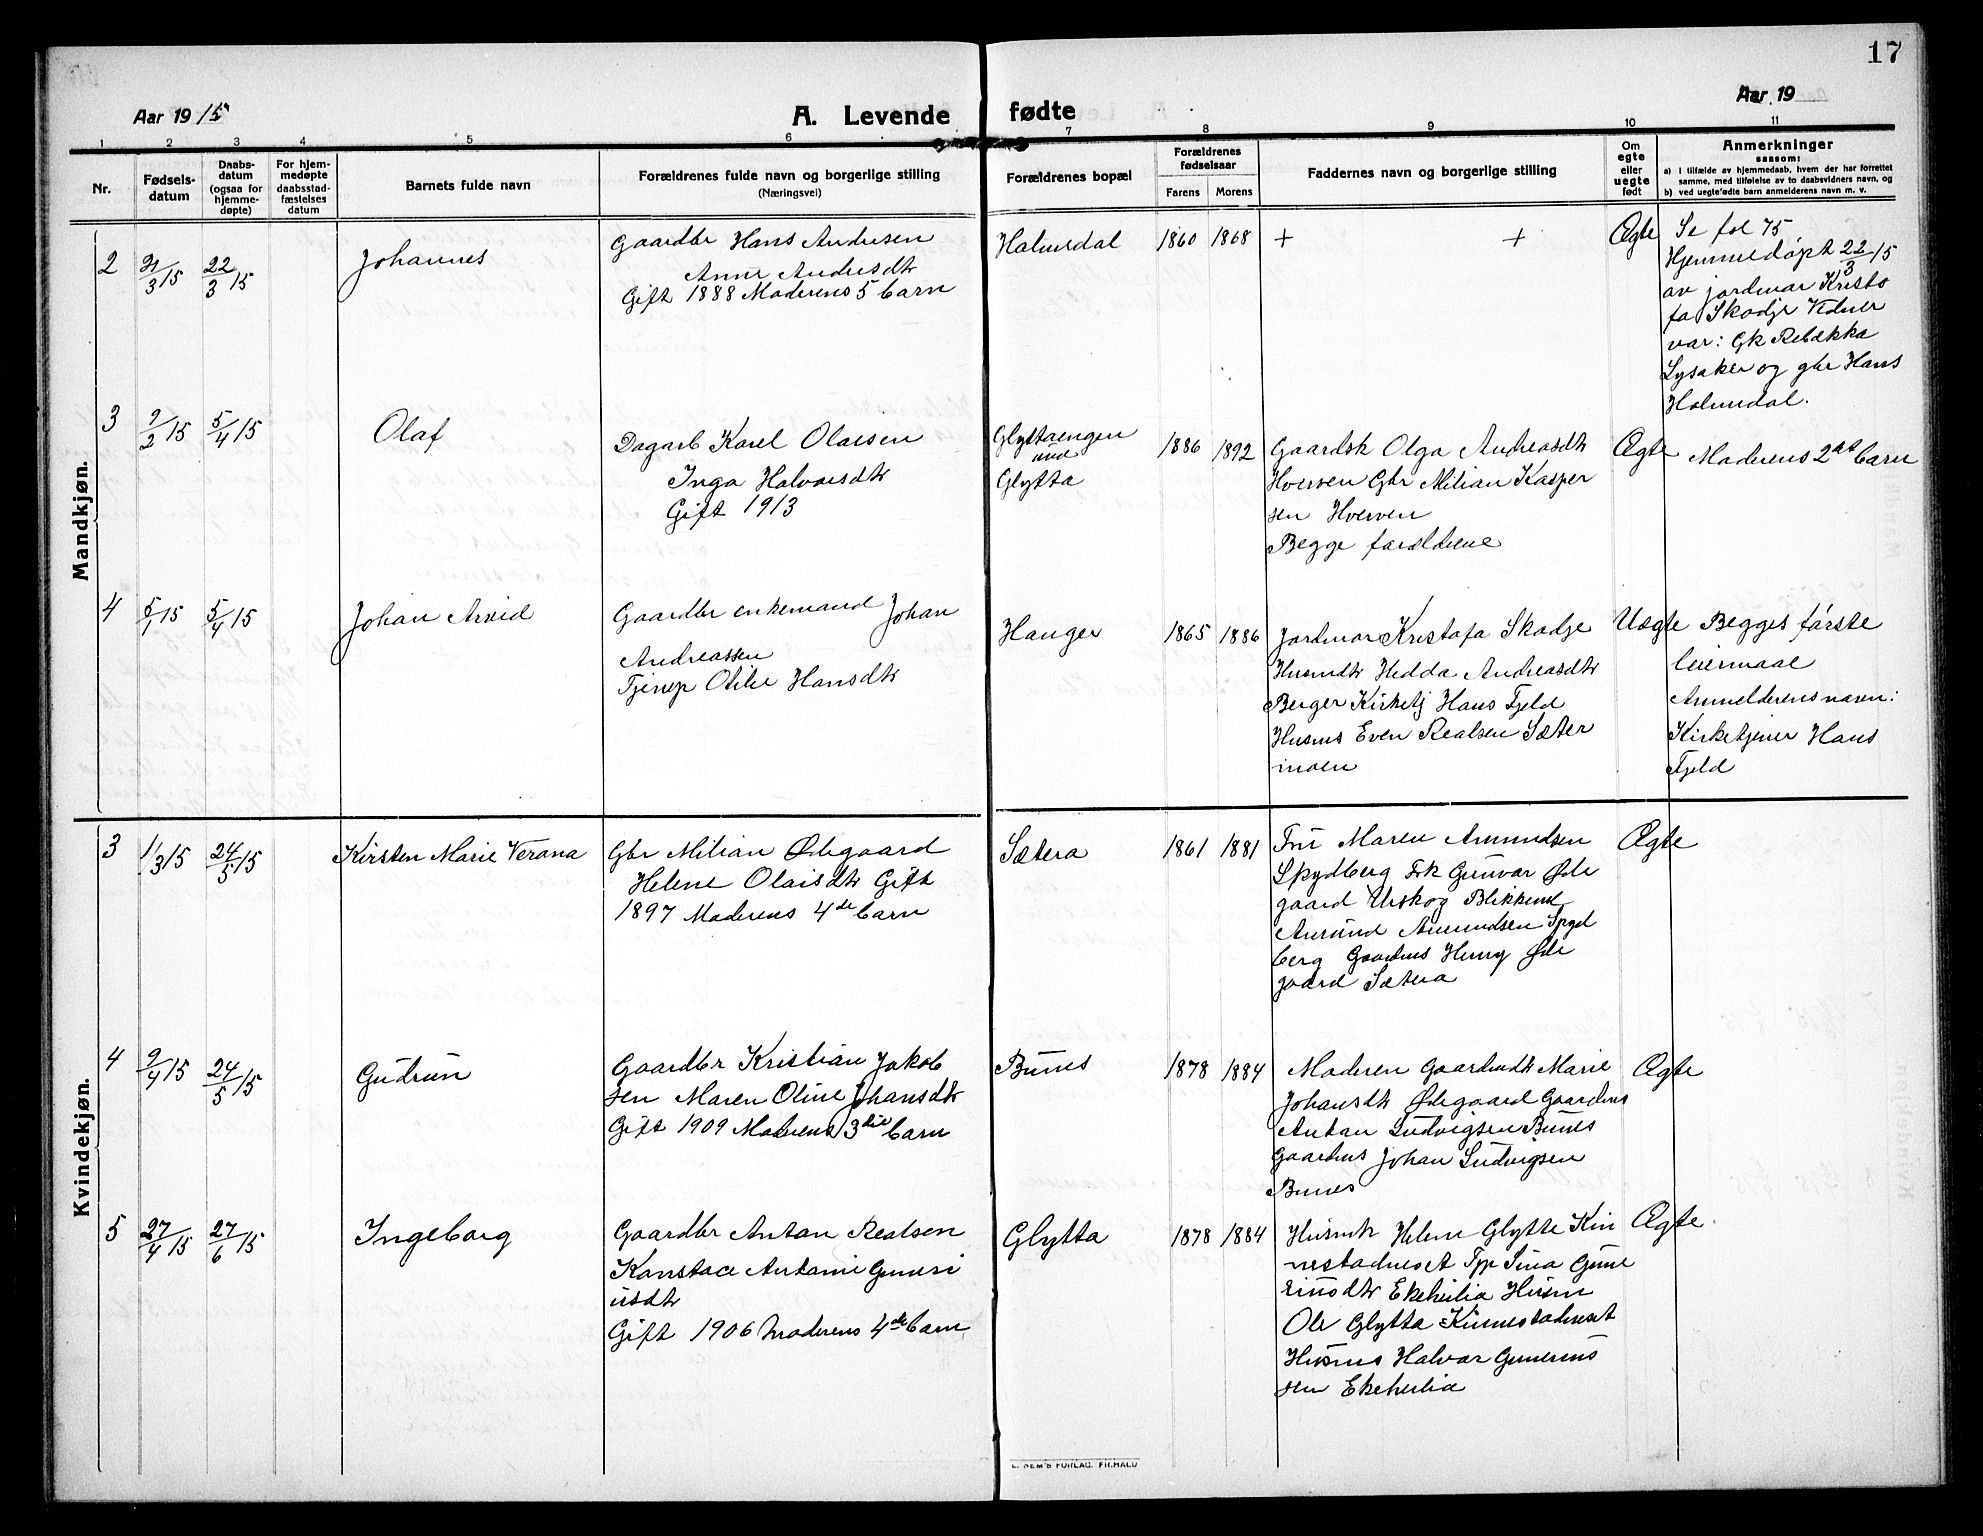 17
Aar 1915
A. Levende fødte
Aar 19
1 2 3 4 5 6 7 8 9 10 11
Nr.
Fødsels-
datum
Daabs-
datum
(ogsaa for
hjemme-
døpte)
For hjem-
medøpte
daabsstad-
fæstelses
datum
Barnets fulde navn
Forældrenes fulde navn og borgerlige stilling
(Næringsvei)
Forældrenes bopæl
Forældrenes
fødselsaar
Farens Morens
Faddernes navn og borgerlige stilling
Om
egte
eller
uegte
født
Anmerkninger
saasom:
a) i tilfælde av hjemmedaab, hvem der har forrettet
samme, med tilføielse av to daabsvidners navn, og
b) ved uegtefødte barn anmelderens navn m. v.
Mandkjøn.
2
21/3 15
22/3 15
Johannes
Gaardbr Hans Andersen
Anne Andersdtr
Gift 1888 Moderens 5 barn
Holmsdal
1860 1868
+ +
Ægte
Se fol 75
Hjemmedøpt 22/3 15
av jordmor Kristo
fa Skodje Vidner
var: Gk Rebækka
Lysaker og gbr Hans
Holmdal.
3
9/2 15
5/4 15
Olaf
Dagarb Karel Olaesen
Inga Halvorsdtr
Gift 1913
Glyttaengen
und
Glytta
1886 1892
Gaardsk Olga Andreasdtr
Hverven Gbr Milian Kasper
sen Hverven
Begge forældrene
Ægte
Moderens 2det barn
4
5/1 15
5/4 15
Johan Arvid
Gaardbr enkemand Johan
Andreassen
Tjenep Otilie Hansdtr
Hanger
1865 1886
Jordmor Kristofa Skodje
Husmdtr Hedda Andreasdtr
Berger Kirketj Hans Fjeld
Husms Even Realsen Sæter
moen
Uægte
Begges første
leiermaal
Anmelderens navn:
Kirketjener Hans
Fjeld
Kvindekjøn.
3
1/3 15
24/5 15
Kirsten Marie Verona
Gbr Milian Ødegaard
Helene Olaisdtr Gift
1897 Moderens 4de barn
Sætera
1861 1881
Fru Maren Amundsen
Spydberg Frk Gunvor Øde
gaard Urskog Blikkensl
Amund Amundsen Spyd
berg Gaardms Henry Øde
gaard Sætera
Ægte
4
9/4 15
24/5 15
Gudrun
Gaardbr Kristian Jakob
sen Maren Oline Johansdtr
Gift 1909 Moderens 3die barn
Bunes
1878 1884
Moderen Gaardmdtr Marie
Johansdtr Ødegaard Gaardms
Anton Ludvigsen Bunes
Gaardms Johan Ludvigsen
Bunes
Ægte
5
27/4 15
27/6 15
Ingeborg
Gaardbr Anton Realsen
Konstace Antonie Guneri
usdtr
Gift 1906 Moderens 4de barn
Glytta
1878 1884
Husmk Helene Glytte Kin
nestadneset Tpp Sina Gune
riusdtr Ekeherlia Husm
Ole Glytta Kinnestadneset
Husms Halvor Gunerius
sen Ekeherlia
Ægte
E. SEM'S FORLAG. FR.HALD